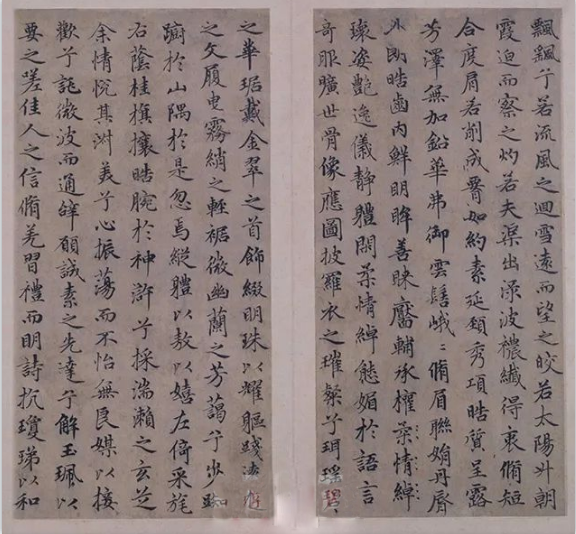 飄飖兮若流風之迴雪遠而望之皎若太陽升朝
霞迫而察之灼若夫渠出渌波襛纖得衷脩短
合度肩若削成腰如約素延頸秀項皓質呈露
芳澤無加鉛華弗御雲髻峩〻脩眉聯娟丹脣
外朗皓齒内鮮明眸善睞靨輔承權柔情綽
瓌姿艷逸儀静體閑柔情綽態媚於語言
奇服曠世骨像應圖披羅衣之璀粲兮珥瑶碧
之華琚戴金翠之首飾綴明珠以耀軀踐遠遊
之文履曳霧綃之輕裾微幽蘭之芳藹兮步踟
蹰於山隅於是忽焉縱體以敖以嬉左倚采旄
右蔭桂旗攘皓腕於神滸兮採湍瀨之玄芝
余情恱其淑美兮心振蕩而不怡無良媒以接
歡兮託微波而通辭願誠素之先達兮解玉珮以
要之嗟佳人之信脩羌習禮而明詩抗瓊珶以和